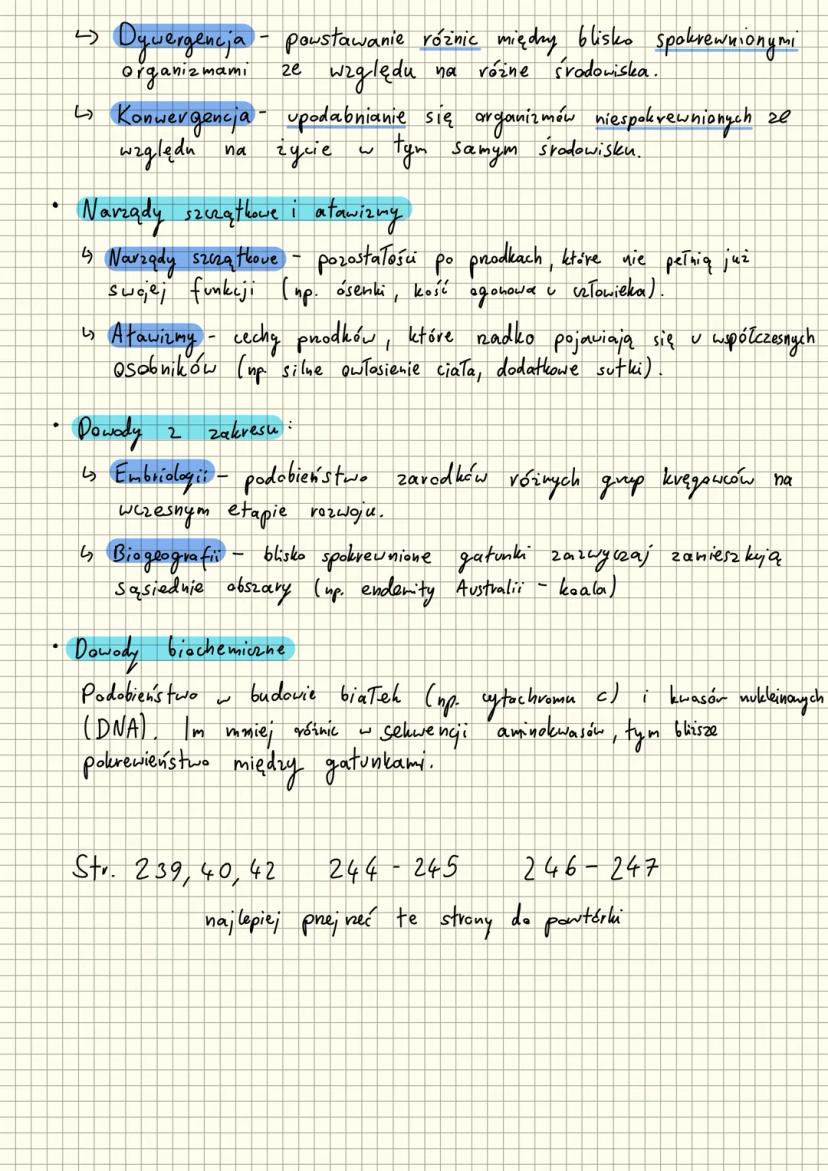 ↳ Dywergencja - powstawanie różnic między blisko spokrewnionymi
organizmami ze względu na różne środowiska.
↳ Konwergencja - upodabnianie się organizmów niespokrewnionych ze
względu na życie w tym samym środowisku.
• Narządy szczątkowe i atawizmy
↳ Narządy szczątkowe - pozostałości po przodkach, które nie pełnią już
swojej funkcji (np. ósemki, kość ogonowa u człowieka).
↳ Atawizmy - cechy przodków, które rzadko pojawiają się u współczesnych
osobników (np. silne owłosienie ciała, dodatkowe sutki).
• Dowody z zakresu:
↳ Embriologii - podobieństwo zarodków różnych grup kręgowców na
wczesnym etapie rozwoju.
↳ Biogeografii - blisko spokrewnione gatunki zazwyczaj zamieszkują
sąsiednie obszary (np. endemity Australii - koala)
• Dowody biochemiczne
Podobieństwo w budowie białek (np. cytochromu c) i kwasów nukleinowych
(DNA). Im mniej różnic w sekwencji aminokwasów, tym bliższe
pokrewieństwo między gatunkami.
Str. 239, 40, 42 244 - 245 246 - 247
najlepiej przejrzeć te strony do powtórki